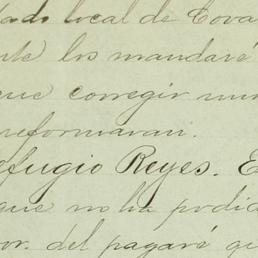 tado local de Cova
nte los mandaré
que corregir
reformaran.
efugio Reyes. E
que no ha podid
or. del pagaré qu